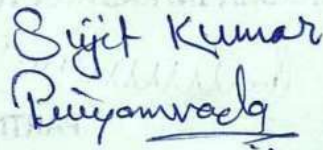 Sujit Kumar
Priyamvada